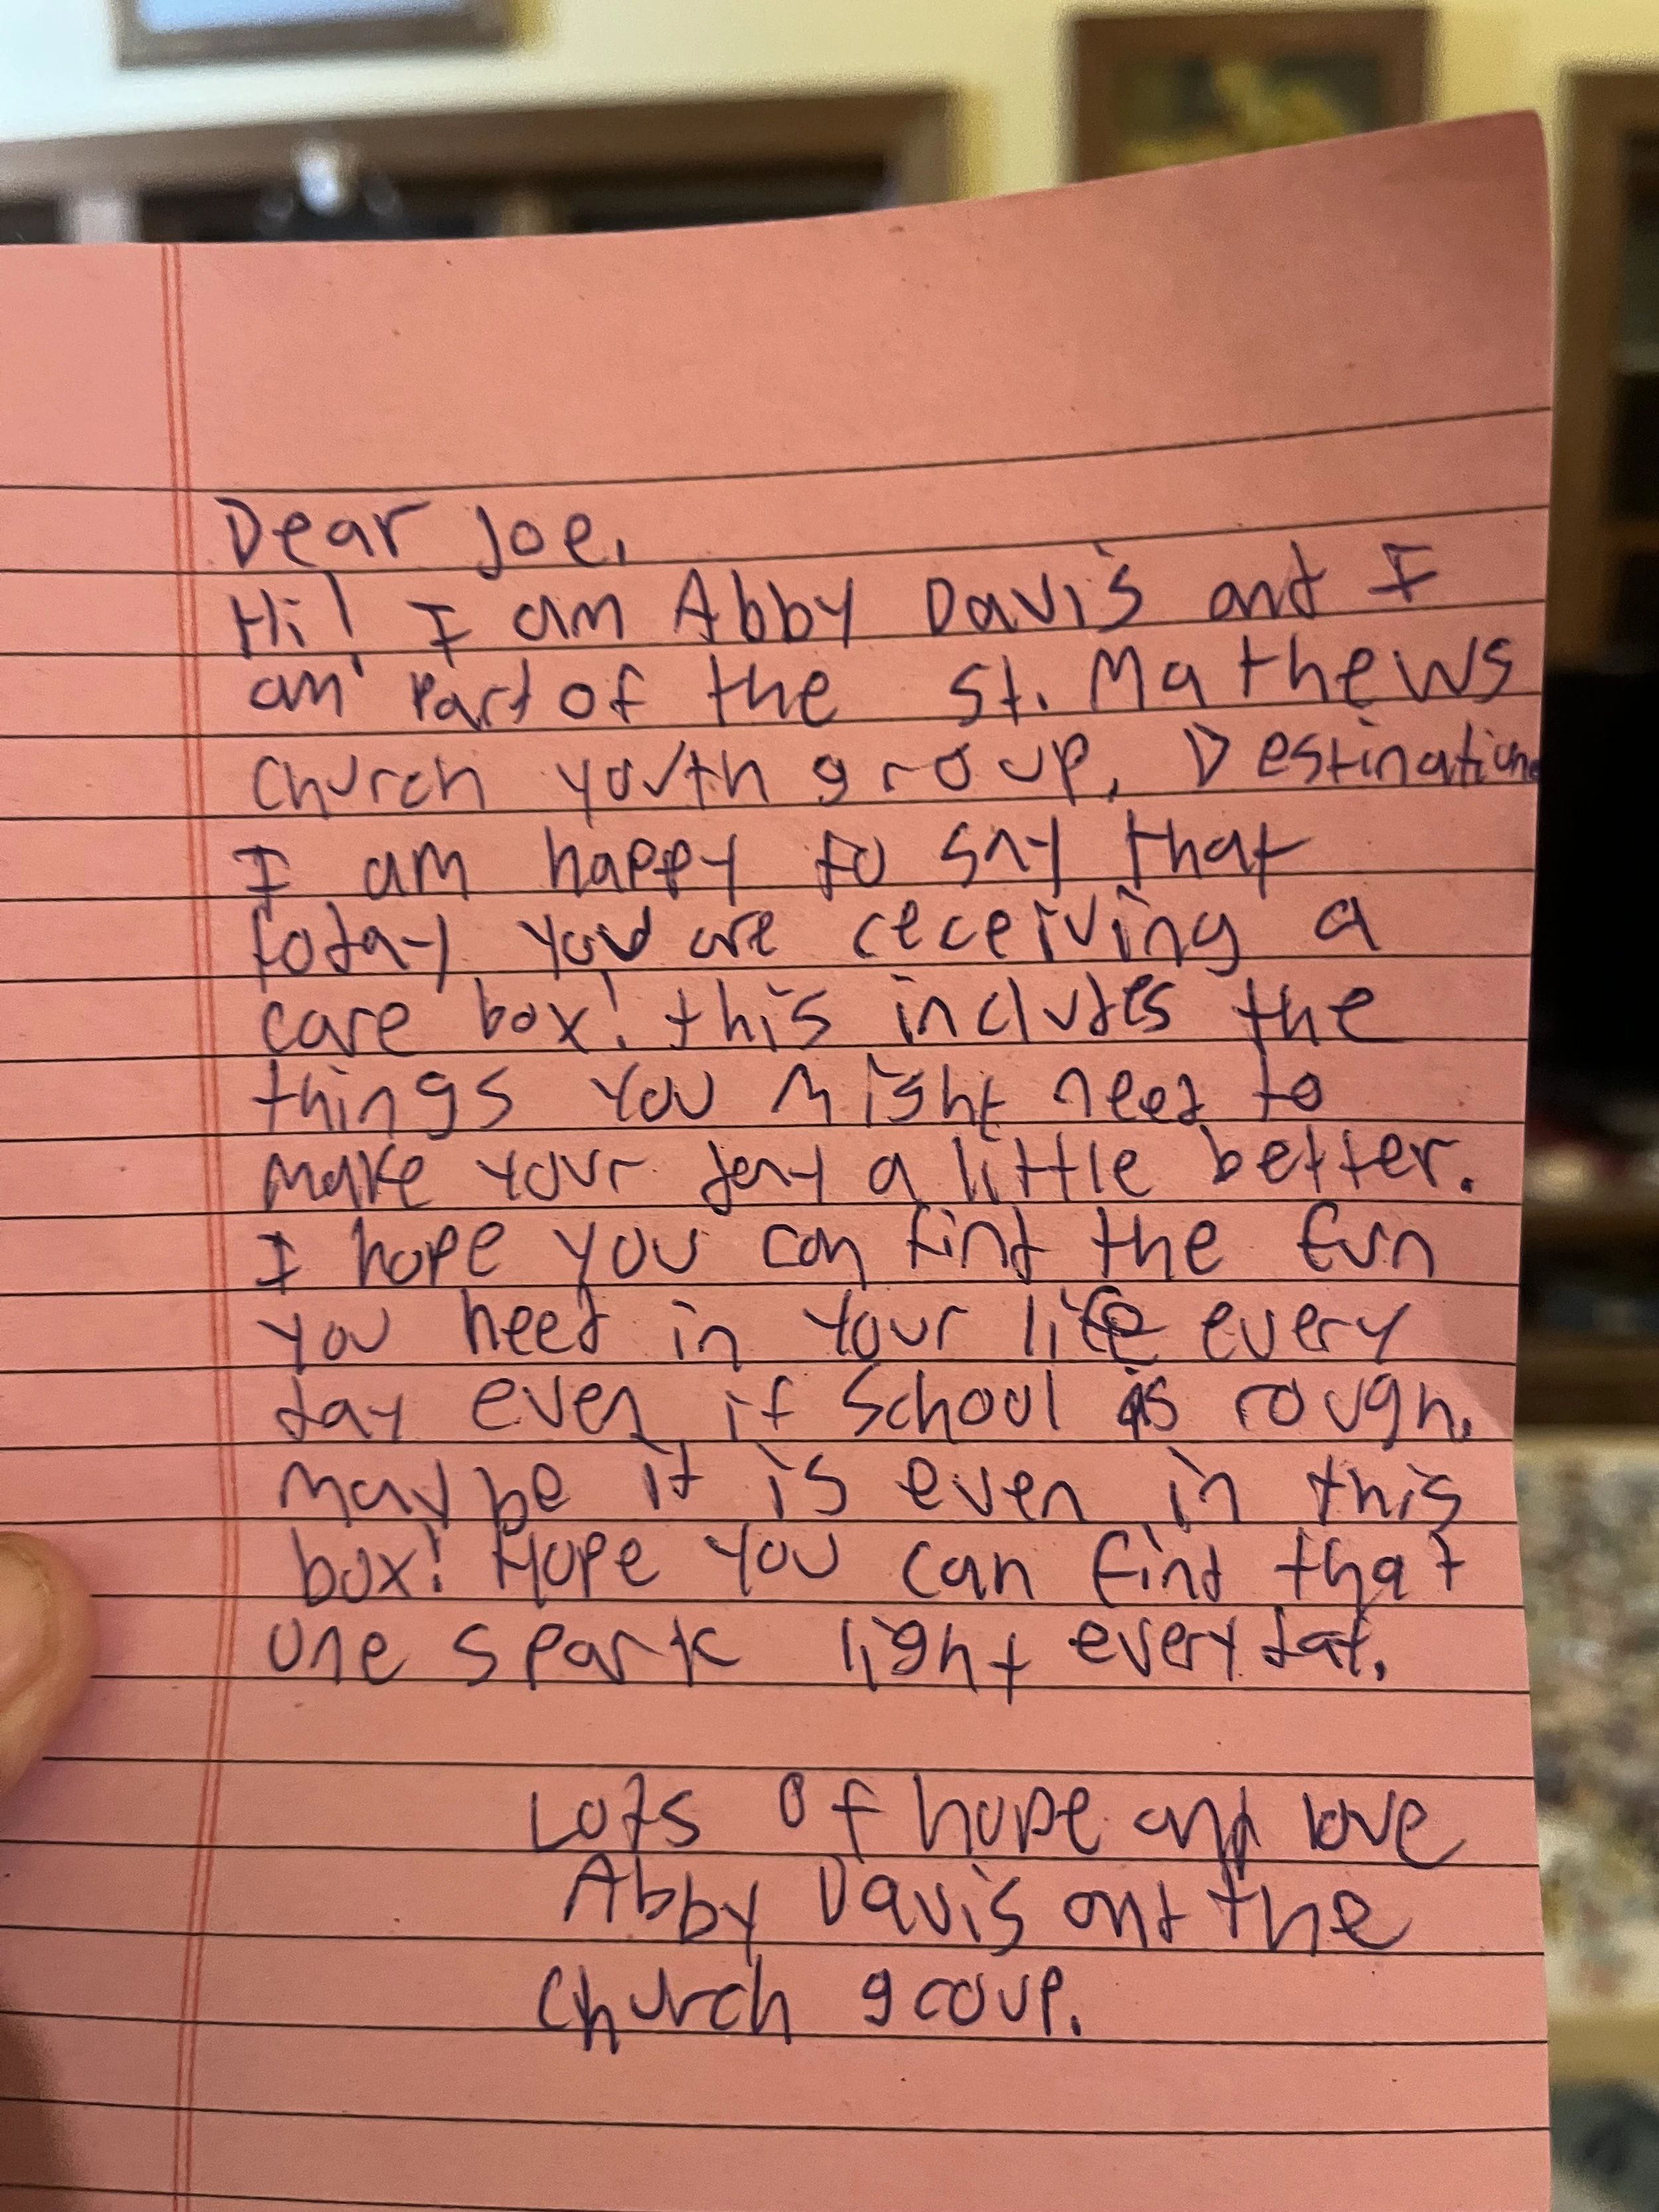 Dear Joe,
Hi! I am Abby Davis and I
am part of the St. Mathews
Church youth group, Destination.
I am happy to say that
today you are receiving a
care box! this includes the
things you might need to
make your day a little better.
I hope you can find the fun
you need in your life every
day even if school is rough.
maybe it is even in this
box! Hope you can find that
one spark light every day.
Lots of hope and love
Abby Davis and the
Church group.